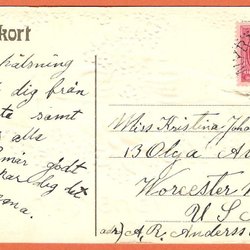 kort
hälsning
dig från
te samt
alla
mår godt
kar dig det
mma.
Miss Kristina Joha
13 Olga A
Worcester
U S
adr) A. R. Anderss